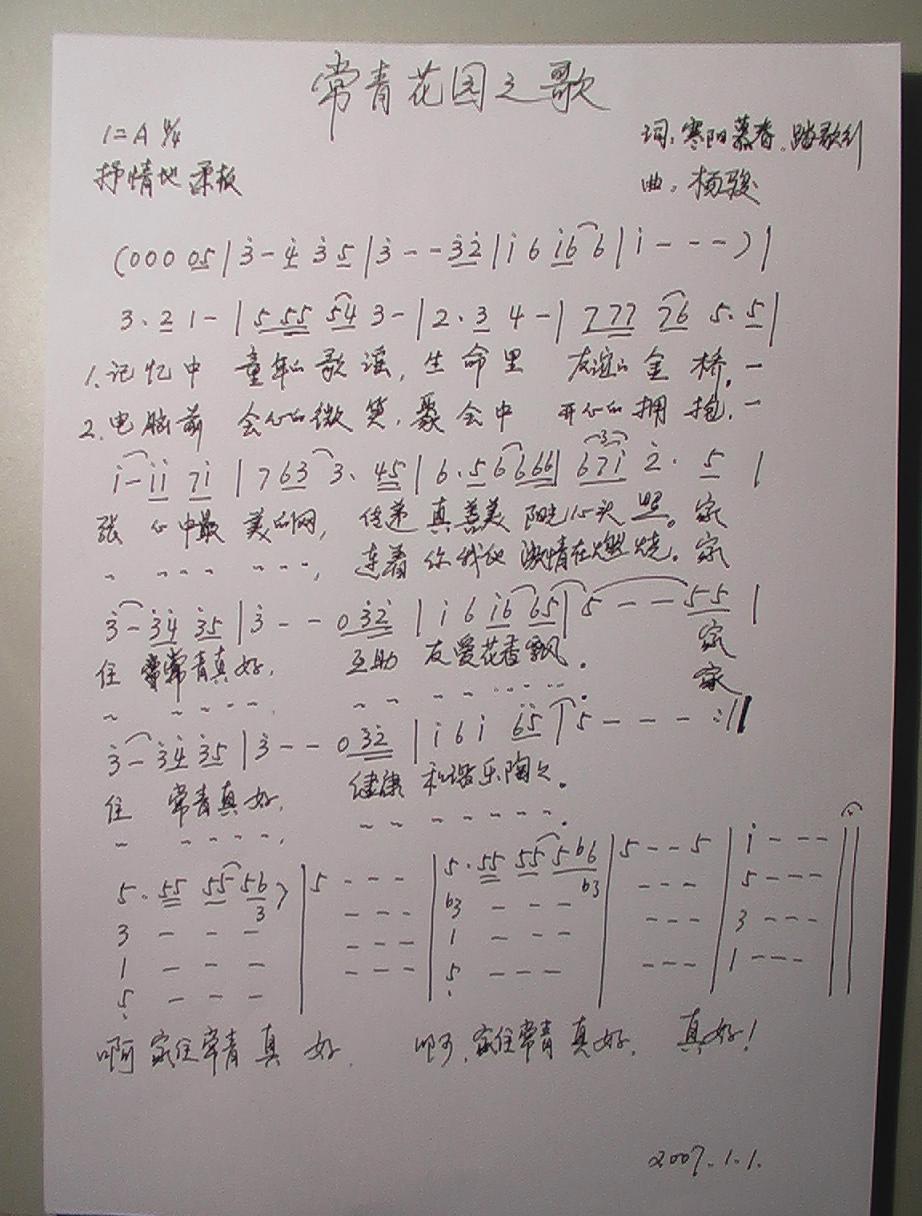 常青花园之歌
1=A 4/4 词：寒阳慕春、踏歌行
抒情地 柔板 曲：杨骏
(000 05|3̇-4̇ 3̇5|3̇--3̇2̇|i 6 i6 6|i---)|
3·2 1-|555 54 3-|2·3 4-|777 76 5·5|
1.记忆中 童年的歌谣，生命里 友谊的金桥。一
2.电脑前 会心的微笑，聚会中 开心的拥抱。一
i-ii 7i|763 3·45|6·5 6666|67i 2̇· 5|
张 心中最 美的网，传递真善美 阳光心头照。家
〃 〃〃〃 〃〃〃，连着你我他 激情在燃烧。家
3̇-3̇4̇ 3̇5|3̇--03̇2̇|i 6 i6 65|5--55|
住 常青真好， 互助 友爱花香飘。 家
〃 〃〃〃〃. 〃〃 〃〃〃〃〃. 家
3̇-3̇4̇ 3̇5|3̇--03̇2̇|i 6 i 65|5---:||
住 常青真好， 健康 和谐乐陶陶。
〃 〃〃〃〃， 〃〃 〃〃〃〃〃。
5·55 55 56|5---|5·55 55 5b6|5--5|i---||
3 --- 3 --- b3 --- b3 --- 5---
1 --- --- 1 --- --- 3---
5̣ --- --- 5̣ --- --- 1---
啊 家住常青真 好， 啊，家住常青真好， 真好！
2007.1.1.